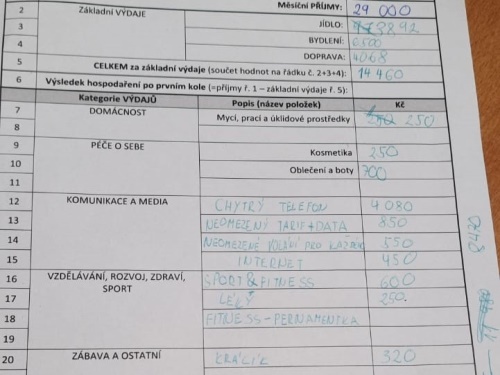 Měsíční PŘÍJMY: 29 000
2 Základní VÝDAJE JÍDLO: 3892
3 BYDLENÍ: 6500
4 DOPRAVA: 4068
5 CELKEM za základní výdaje (součet hodnot na řádku č. 2+3+4): 14 460
6 Výsledek hospodaření po prvním kole (=příjmy ř. 1 – základní výdaje ř. 5):
Kategorie VÝDAJŮ Popis (název položek) Kč
7 DOMÁCNOST Mycí, prací a úklidové prostředky 250
8
9 PÉČE O SEBE Kosmetika 250
10 Oblečení a boty 700
11
12 KOMUNIKACE A MEDIA CHYTRÝ TELEFON 4080
13 NEOMEZENÝ TARIF+DATA 850
14 NEOMEZENÉ VOLÁNÍ PRO 550
15 INTERNET 450
16 VZDĚLÁVÁNÍ, ROZVOJ, ZDRAVÍ, SPORT SPORT&FITNESS 600
17 LÉKY 250
18 FITNESS-PERNAMENTKA
19
20 ZÁBAVA A OSTATNÍ KRÁLÍK 320
8430